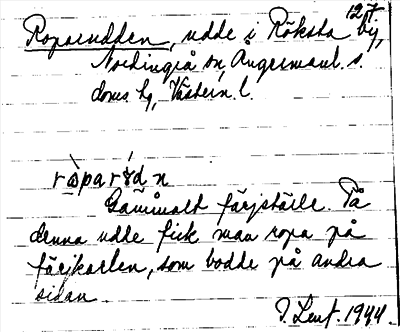 127.
Roparudden, udde i Röksta by,
Nordingrå sn, Ångermanl. s.
doms hg, Västern. l.
Gammalt färjställe. På
denna udde fick man ropa på
färjkarlen, som bodde på andra
sidan.
1944.